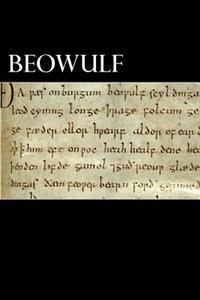 BEOWULF
Ða ƿæs on burgum beoƿulf scyldinga
leod cyning longe þrage folcum ge
ge fæder ellor hƿearf aldor of ear
him eft onƿoc heah healf dene he
þenden lifde gamol ⁊ guð reouƿ glæde
dingas ðæm feoƿer bearn forð gerimed